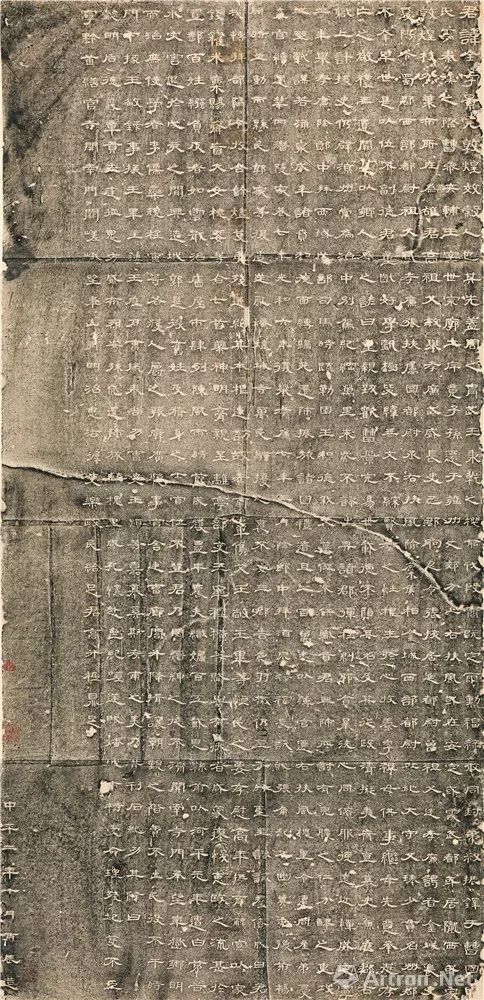 君諱全字景完敦煌效穀人也其先蓋周之冑武王秉乾之機翦伐殷商既定爾勳福祿攸同封弟叔振鐸于曹國因
氏焉秦漢之際曹參夾輔王室世宗廓土斥竟子孫遷于雍州之郊分止右扶風或在安定或處武都或居隴西或家
敦煌枝分葉布所在為雄君高祖父敏舉孝廉武威長史巴郡朐忍令張掖居延都尉曾祖父述孝廉謁者金城長史
夏陽令蜀郡西部都尉祖父鳳孝廉張掖屬國都尉丞右扶風隃麋侯相金城西部都尉北地大守父琫少貫名州郡
不幸早世是以位不副德君童齓好學甄極毖緯無文不綜賢孝之性根生於心收養季祖母供事繼母先意承志存
亡之敬禮無遺闕是以鄉人為之諺曰重親致歡曹景完易世載德不隕其名及其從政清擬夷齊直慕史魚歷郡右
職上計掾史仍辟涼州常為治中別駕紀綱萬里朱紫不謬出典諸郡彈枉糾邪貪暴洗心同僚服德遠近憚威建寧
二年舉孝廉除郎中拜西域戊部司馬時疏勒國王和德弒父篡位不供職貢君興師征討有吮膿之仁分醪之惠攻
城野戰謀若涌泉威牟諸賁和德面縛歸死還師振旅諸國禮遺且二百萬悉以薄官遷右扶風槐里令遭同產弟憂
棄官續遇禁网潛隱家巷七年光和六年復舉孝廉七年三月除郎中拜酒泉祿福長訞賊張角起兵幽冀兗豫荊楊
同時並動而縣民郭家等復造逆亂燔燒城寺萬民騷擾人懷不安三郡告急羽檄仍至于時聖主諮諏群僚咸曰君
哉轉拜郃陽令收合餘燼芟夷殘迸絕其本根遂訪故老商量儁艾王敞王畢等恤民之要存慰高年撫育鰥寡以家
錢糴米粟賜癃盲大女桃婓等合七首藥神明膏親至離亭部吏王宰程橫等賦與有疾者咸蒙瘳悛惠政之流甚於
置郵百姓繈負反者如雲戢治廧屋市肆列陳風雨時節歲獲豐年農夫織婦百工戴恩縣前以河平元年遭白茅谷
水災害退於戌亥之間興造城郭是後舊姓及脩身之士官位不登君乃閔縉紳之徒不濟開南寺門承望華嶽鄉明
而治庶使學者李儒欒規程寅等各獲人爵之報廓廣聽事官舍廷曹廊閤升降揖讓朝覲之階費不出民役不干時
門下掾王敞錄事掾王畢主簿王歷戶曹掾秦尚功曹史王顓等嘉慕奚斯考甫之美乃共刊石紀功其辭曰
懿明后德義章貢王庭征鬼方威布烈安殊荒還師旅臨槐里感孔懷赴喪紀嗟逆賊燔城市特受命理殘圮芟不臣
寧黔首繕官寺開南門闕嵯峨望華山鄉明治惠沾渥吏樂政民給足君高升極鼎足
中平二年十月丙辰造
Artron.Net